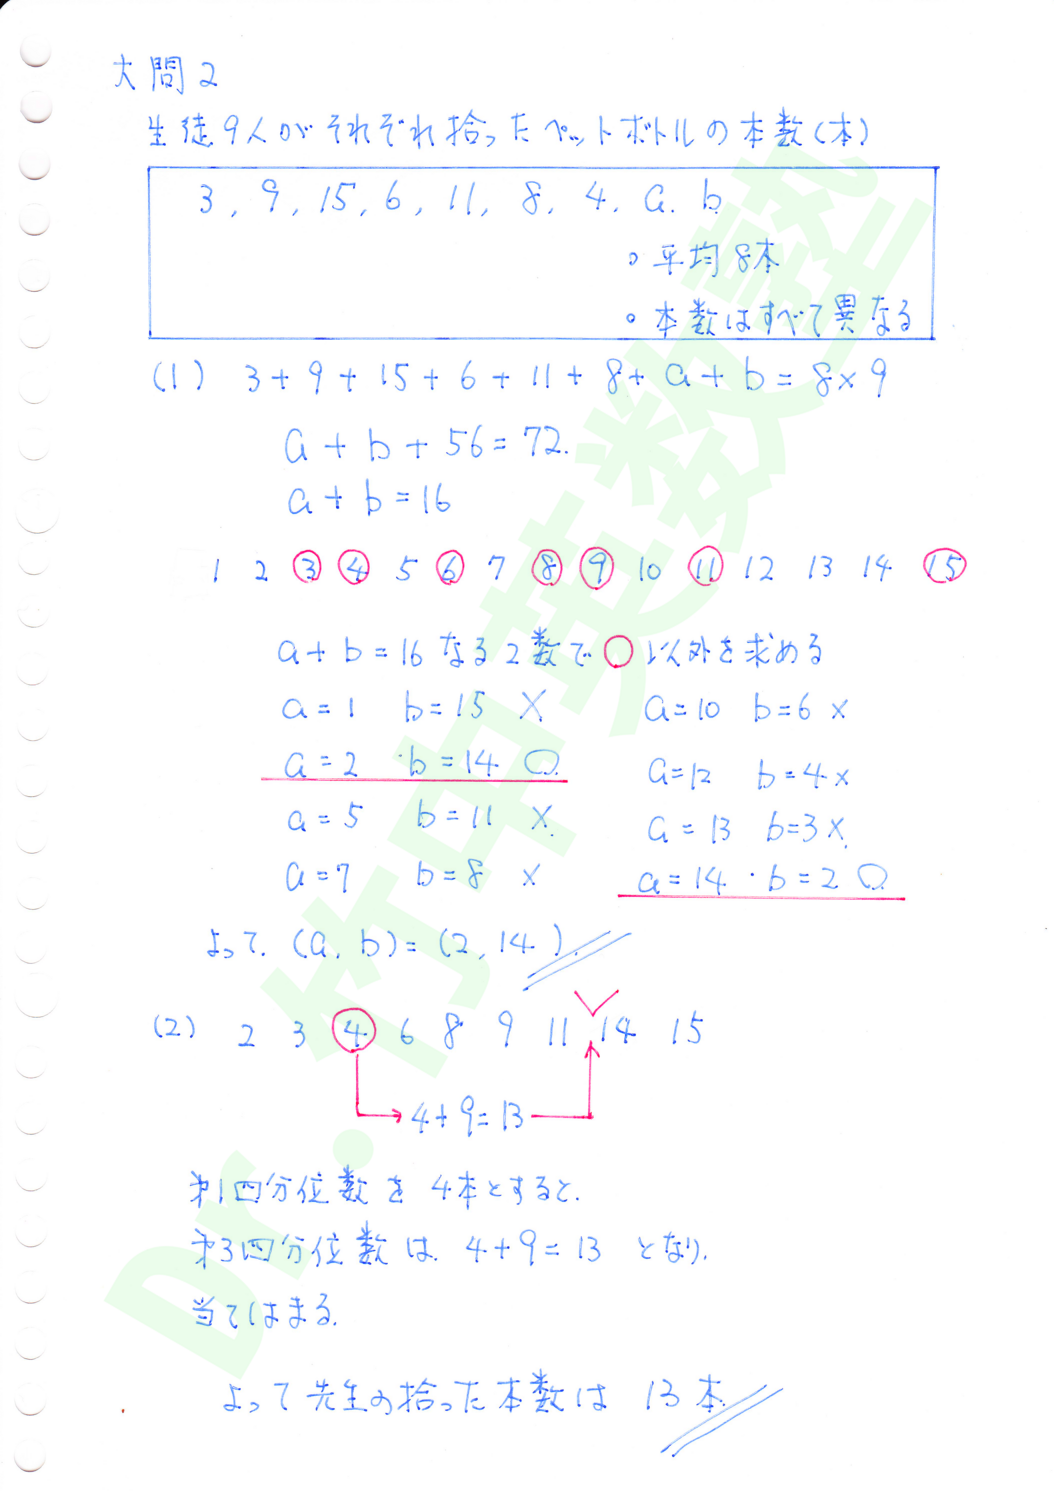 大問2
生徒9人がそれぞれ拾ったペットボトルの本数(本)
3, 9, 15, 6, 11, 8, 4, a, b
。平均8本
。本数はすべて異なる
(1) 3+9+15+6+11+8+a+b=8×9
a+b+56=72.
a+b=16
1 2 ③ ④ 5 ⑥ 7 ⑧ ⑨ 10 ⑪ 12 13 14 ⑮
a+b=16なる2数で○以外を求める
a=1 b=15 ×
a=2 b=14 ○
a=5 b=11 ×
a=7 b=8 ×
a=10 b=6 ×
a=12 b=4 ×
a=13 b=3 ×
a=14 b=2 ○
よって. (a, b)=(2, 14).
(2) 2 3 ④ 6 8 9 11 14 15
4+9=13
第1四分位数を4本とすると.
第3四分位数は. 4+9=13 となり.
当てはまる.
よって先生の拾った本数は 13本
Dr.竹中英数塾